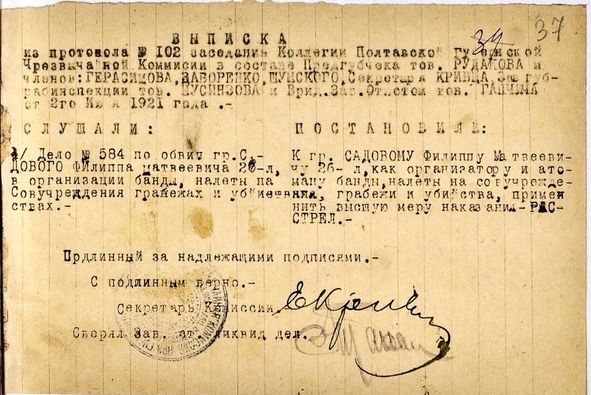 34 37
ВЫПИСКА
из протокола № 102 заседания Коллегии Полтавско Губернской
Чрезвыча ной Комиссии в составе Предгубчека тов. РУДАКОВА и
членов: ГЕРАСИМОВА, ЗАВОРЕНКО, ШУМСКОГО, Секретаря КРИВЦА, Зав губ-
рабинспекции тов. и Врид. Зав. тов. ГАПЧЕМА
от 2го 1921 года .-
СЛУШАЛИ: ПОСТАНОВИЛИ:
1/ Дело № 584 по обвин гр. С
ДОВОГО Филиппа матвеевича 26-л,
в организации банды, налеты на
Совучреждения грабежах и
ствах.-
К гр. САДОВОМУ Филиппу Матвееви-
чу 26-л, как организатору и ато-
ману банды, налеты на совучрежде-
ния, грабежи и убийства, приме
нить высшую меру наказания-РАС-
СТРЕЛ.-
Прдлинный за надлежащими подписями.-
С подлинным верно.-
Секретарь Комиссии
Сверял Зав. ликвид дел.